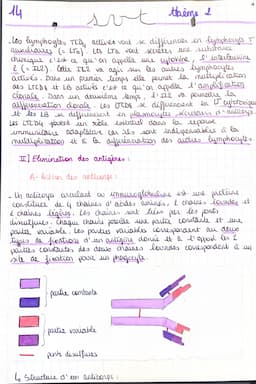 14
svt
thème 2
. Les lymphocytes TCD4 activés vont se différencier en lymphocytes T
auxiliaires (= LTa). Les LTa vont sécréter une substance
chimique c'est ce qu'on appelle une cytokine, l'interleukine
2 (= IL2). Cette IL2 va agir sur les autres lymphocytes
activés. Dans un premier temps elle permet la multiplication
des LTCD8 et LB activés c'est ce qu'on appelle l'amplification
clonale. Dans un deuxième temps l'IL2 va permettre la
différenciation clonale. Les LTCD8 se différencient en LT cytotoxiques
et les LB se différencient en plasmocytes sécréteurs d'anticorps.
Les LTCD4 jouent un rôle central dans la réponse
immunitaire adaptative car ils sont indispensables à la
multiplication et à la différenciation des autres lymphocytes.
II] Elimination des antigènes :
A- Action des anticorps :
. Un anticorps circulant ou immunoglobuline est une protéine
constituée de 4 chaînes d'acides aminés, 2 chaînes lourdes et
2 chaînes légères. Les chaînes sont liées par des ponts
disulfures. Chaque chaîne possède une partie constante et une
partie variable. Les parties variables correspondent aux deux
sites de fixation d'un antigène donné et à l'opposé les 2
parties constantes des deux chaînes lourdes correspondent à un
site de fixation pour un phagocyte.
partie constante
partie variable
ponts disulfures
↳ Structure d'un anticorps :